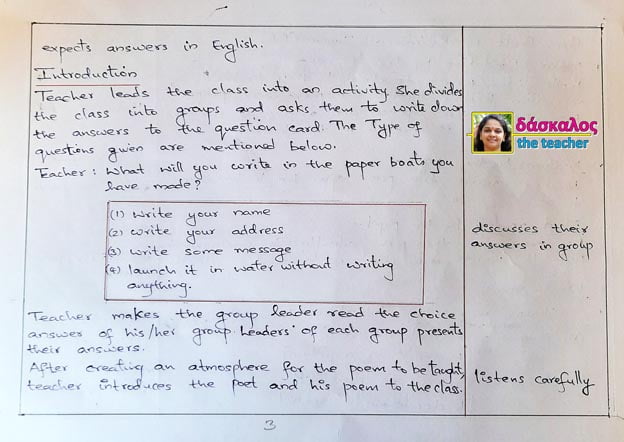 expects answers in English.
Introduction
Teacher leads the class into an activity. She divides
the class into groups and asks them to write down
the answers to the question card. The Type of
questions given are mentioned below.
Teacher : What will you write in the paper boats you
have made?
(1) Write your name
(2) write your address
(3) write some message
(4) launch it in water without writing
anything.
Teacher makes the group leader read the choice
answer of his/her group. Leaders' of each group presents
their answers.
After creating an atmosphere for the poem to be taught,
teacher introduces the poet and his poem to the class.
δάσκαλος
the teacher
discusses their
answers in group
listens carefully
3